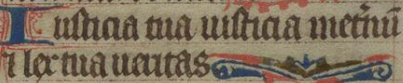 Iusticia tua uisticia met̾nū
⁊ lex tua ueritas